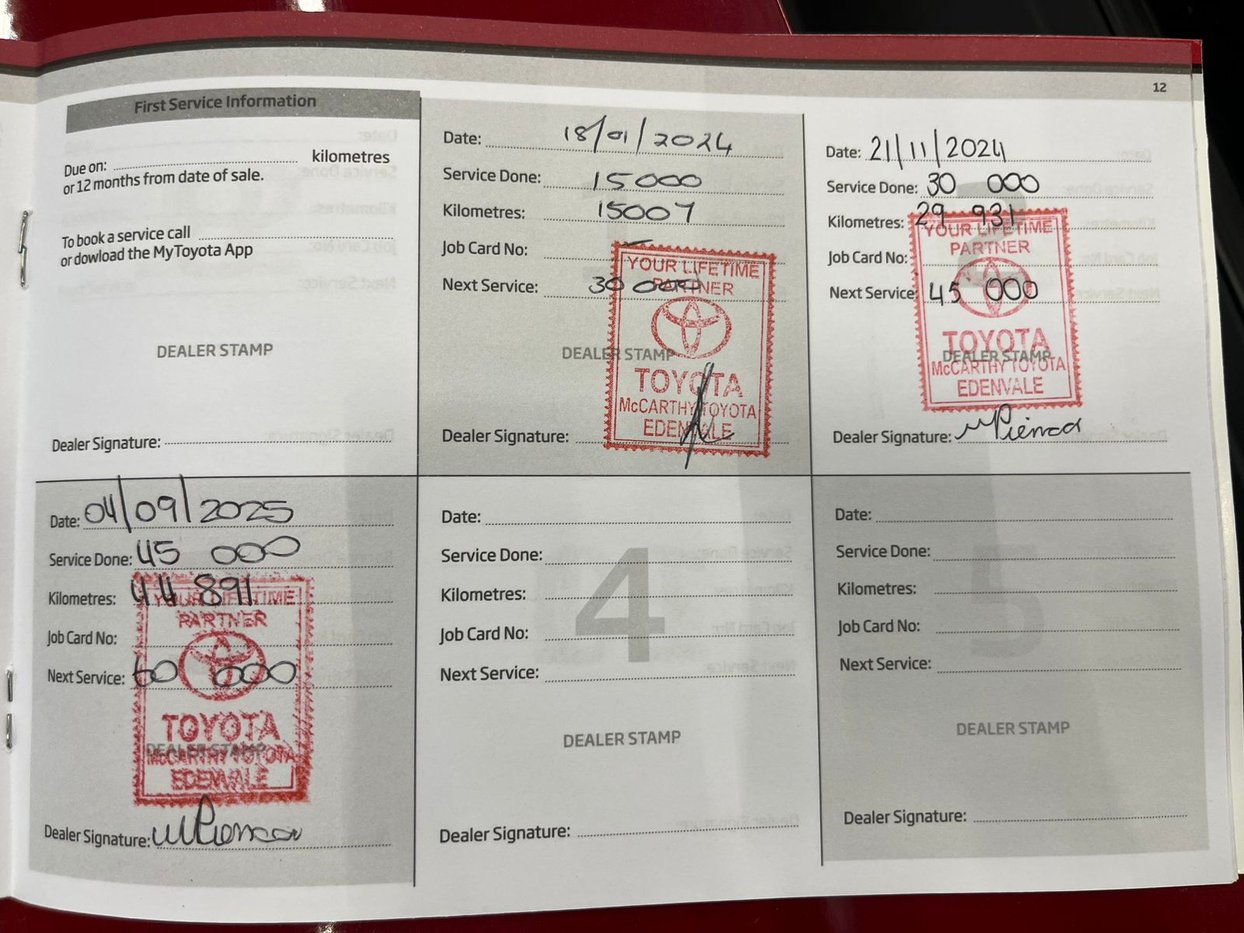 12
First Service Information
Due on: kilometres
or 12 months from date of sale.
To book a service call
or dowload the MyToyota App
DEALER STAMP
Dealer Signature:
Date: 18/01/2024
Service Done: 15000
Kilometres: 15007
Job Card No: –
Next Service: 30 000
DEALER STAMP
YOUR LIFETIME
PARTNER
TOYOTA
McCARTHY TOYOTA
EDENVALE
Dealer Signature:
Date: 21/11/2024
Service Done: 30 000
Kilometres: 29 931
Job Card No:
Next Service: 45 000
DEALER STAMP
YOUR LIFETIME
PARTNER
TOYOTA
McCARTHY TOYOTA
EDENVALE
Dealer Signature:
Date: 04/09/2025
Service Done: 45 000
Kilometres: 44 891
Job Card No:
Next Service: 60 000
DEALER STAMP
YOUR LIFETIME
PARTNER
TOYOTA
McCARTHY TOYOTA
EDENVALE
Dealer Signature:
4
Date:
Service Done:
Kilometres:
Job Card No:
Next Service:
DEALER STAMP
Dealer Signature:
5
Date:
Service Done:
Kilometres:
Job Card No:
Next Service:
DEALER STAMP
Dealer Signature: